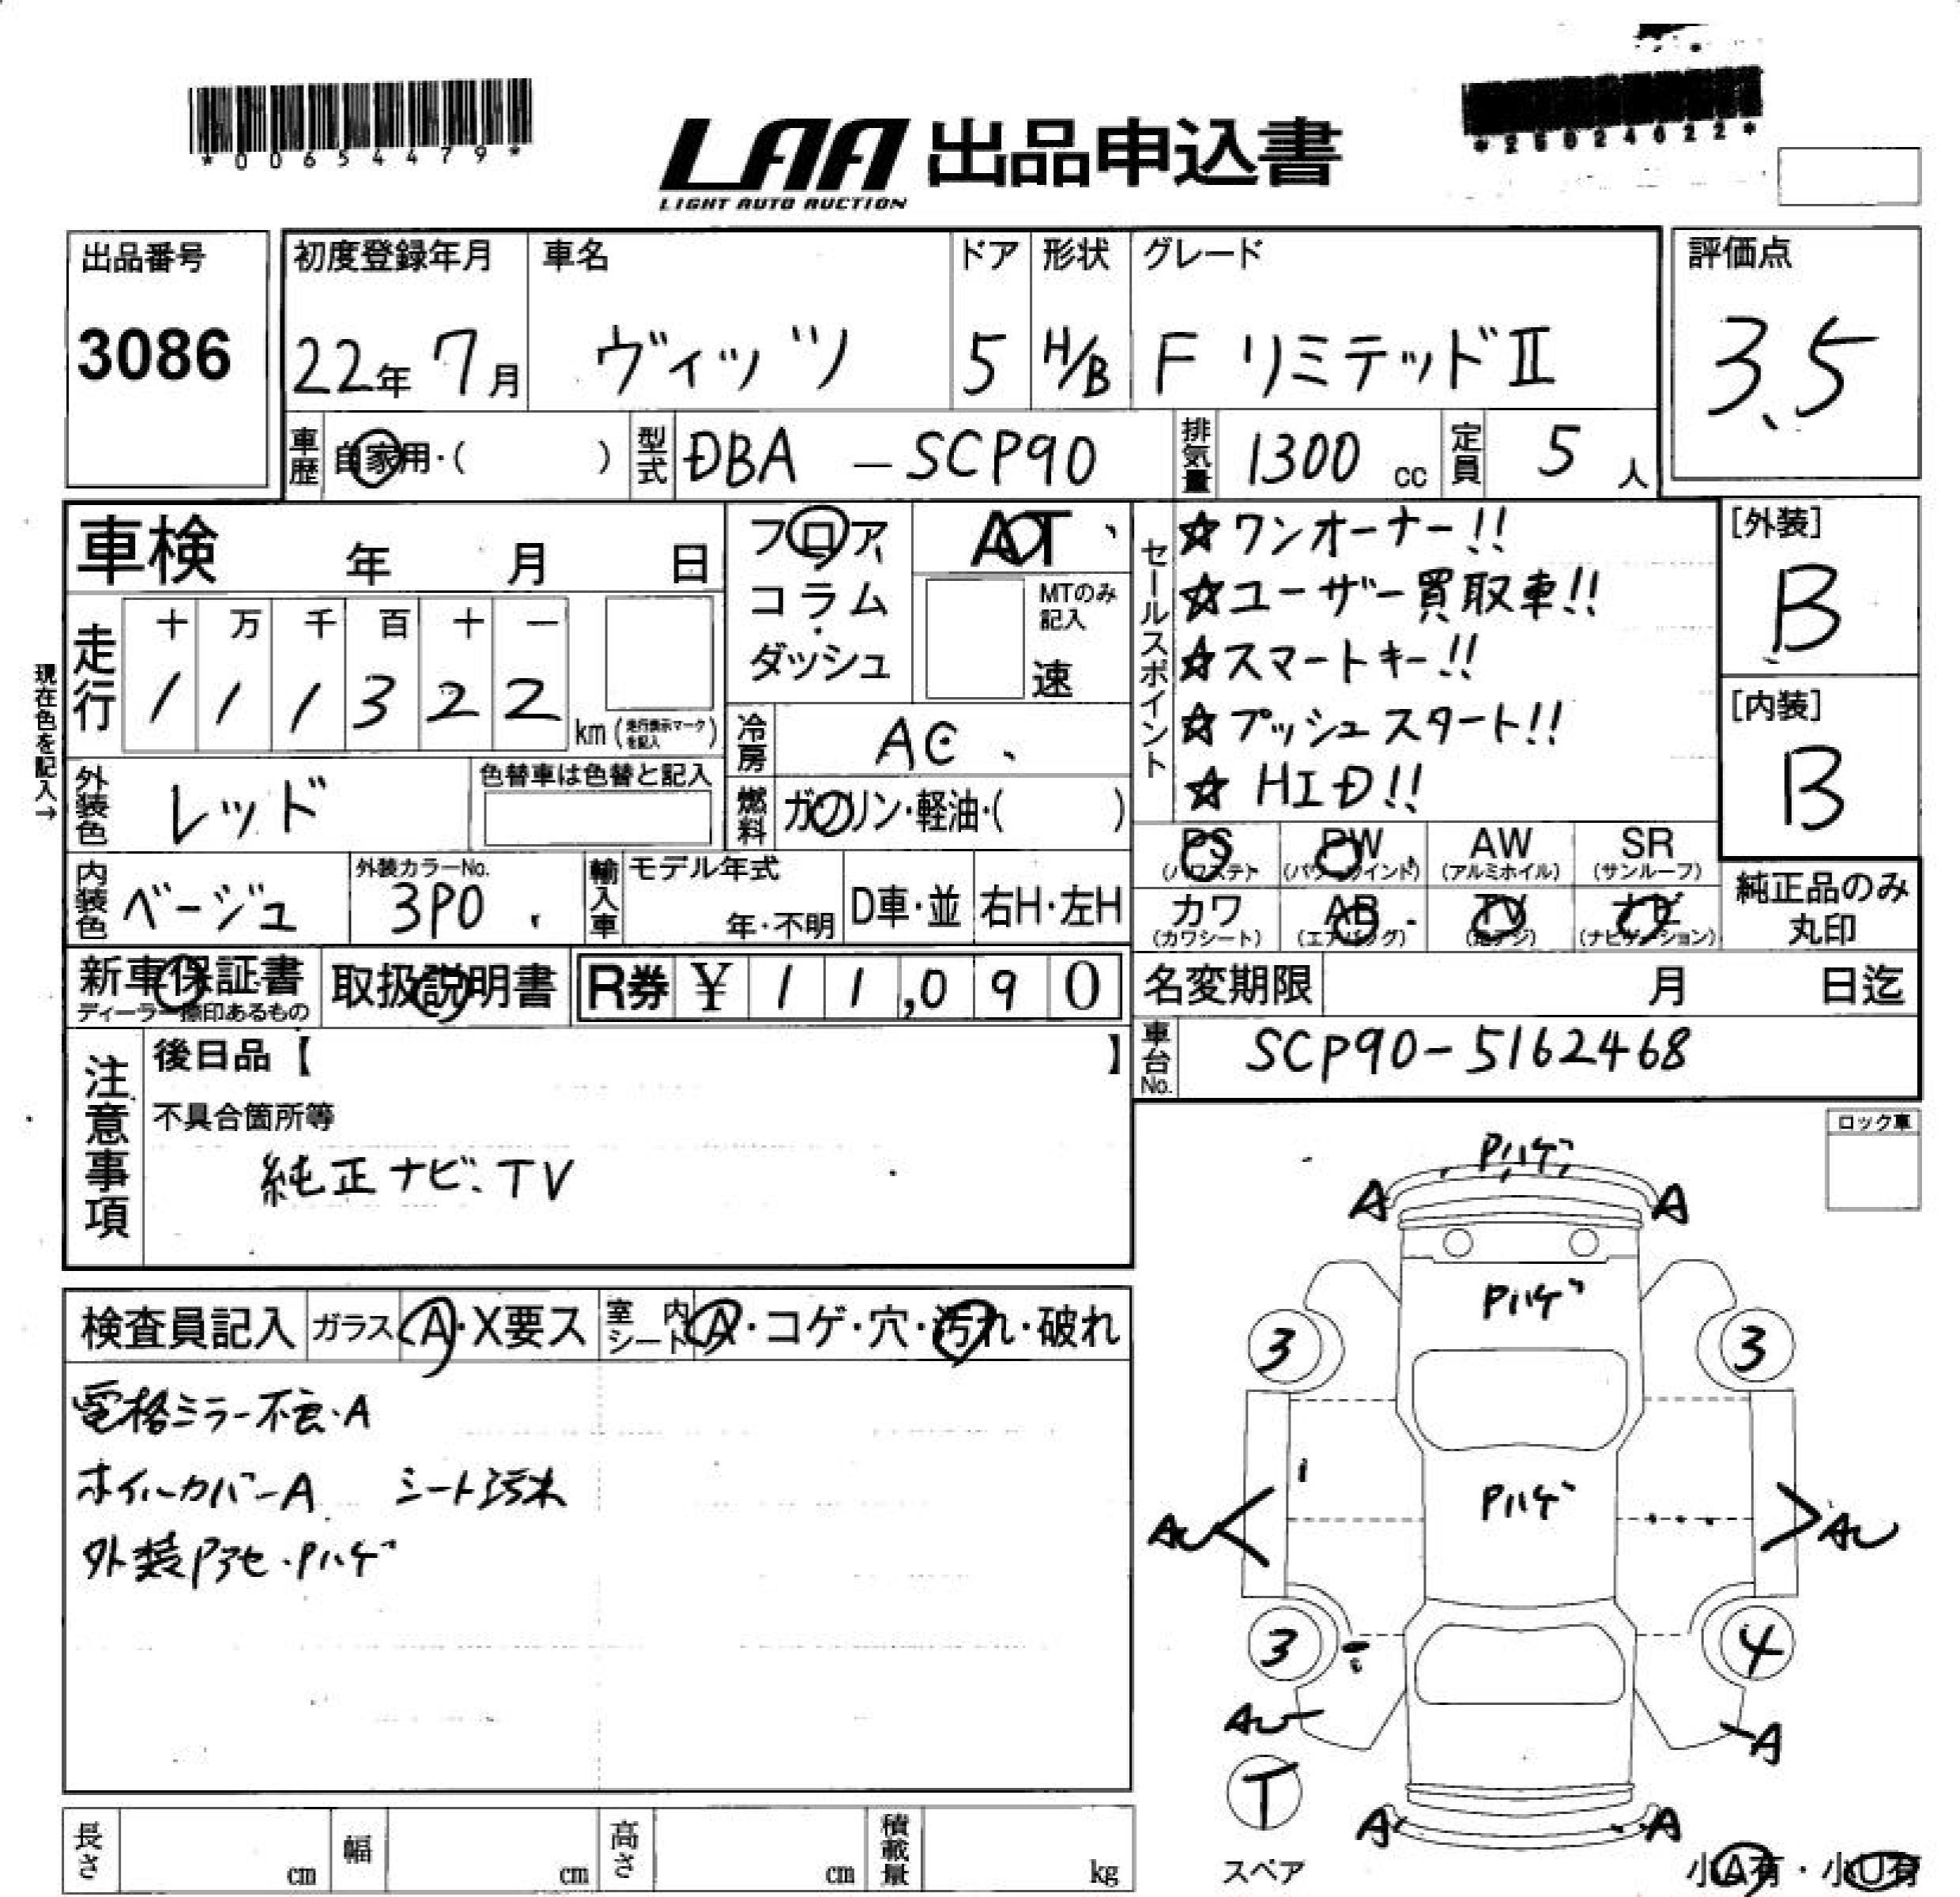 *00654479*
*25024022*
LAA 出品申込書
LIGHT AUTO AUCTION
出品番号
3086
初度登録年月
22年 7月
車名
ヴィッツ
ドア
5
形状
H/B
グレード
F リミテッドⅡ
評価点
3.5
車歴 自家用・( )
型式 DBA - SCP90
排気量 1300 cc
定員 5 人
車検 年 月 日
フロア
コラム
ダッシュ
AT
MTのみ
記入
速
セールスポイント
☆ワンオーナー!!
☆ユーザー買取車!!
☆スマートキー!!
☆プッシュスタート!!
☆HID!!
[外装]
B
[内装]
B
現在色を記入→
走行
十 万 千 百 十 一
1 1 1 3 2 2
km (走行表示マークを記入)
冷房 AC
外装色 レッド
色替車は色替と記入
燃料 ガソリン・軽油・( )
PS
(パワステ)
PW
(パワーウインド)
AW
(アルミホイル)
SR
(サンルーフ)
内装色 ベージュ
外装カラーNo.
3P0
輸入車
モデル年式
年・不明
D車・並
右H・左H
カワ
(カワシート)
AB
(エアバッグ)
TV
(地デジ)
ナビ
(ナビゲーション)
純正品のみ
丸印
新車保証書
ディーラー捺印あるもの
取扱説明書
R券 ¥ 1 1,0 9 0
名変期限 月 日迄
車台No. SCP90-5162468
注意事項
後日品【 】
不具合箇所等
純正ナビ、TV
ロック車
検査員記入
ガラス A・X要ス
室内シート A・コゲ・穴・汚れ・破れ
電格ミラー不良・A
ホイルカバーA シート汚れ
外装Pアセ・Pハゲ
Pハゲ
A A
Pハゲ
3 3
Pハゲ
AU AU
3 4
AU A
T
スペア
A A
小A有・小U有
長さ cm
幅 cm
高さ cm
積載量 kg